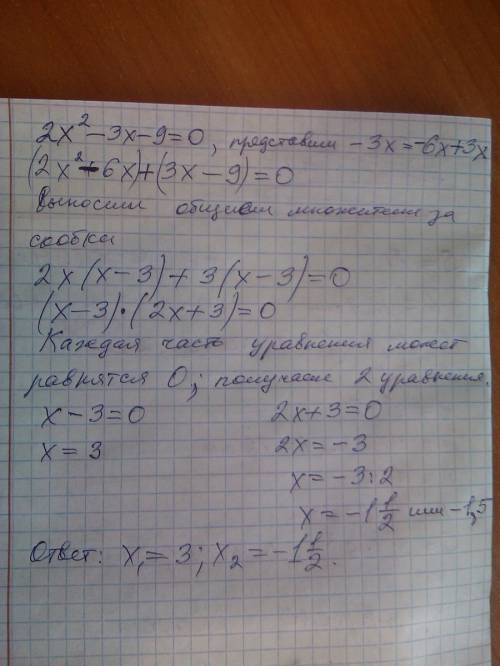 2x² - 3x - 9 = 0, представим - 3x = -6x + 3x
(2x² - 6x) + (3x - 9) = 0
Выносим общий множитель за
скобки
2x(x - 3) + 3(x - 3) = 0
(x - 3) · (2x + 3) = 0
Каждая часть уравнения может
равнятся 0; получаем 2 уравнения.
x - 3 = 0 2x + 3 = 0
x = 3 2x = -3
x = -3 : 2
x = -1 1/2 или -1,5
Ответ: x₁ = 3; x₂ = -1 1/2.